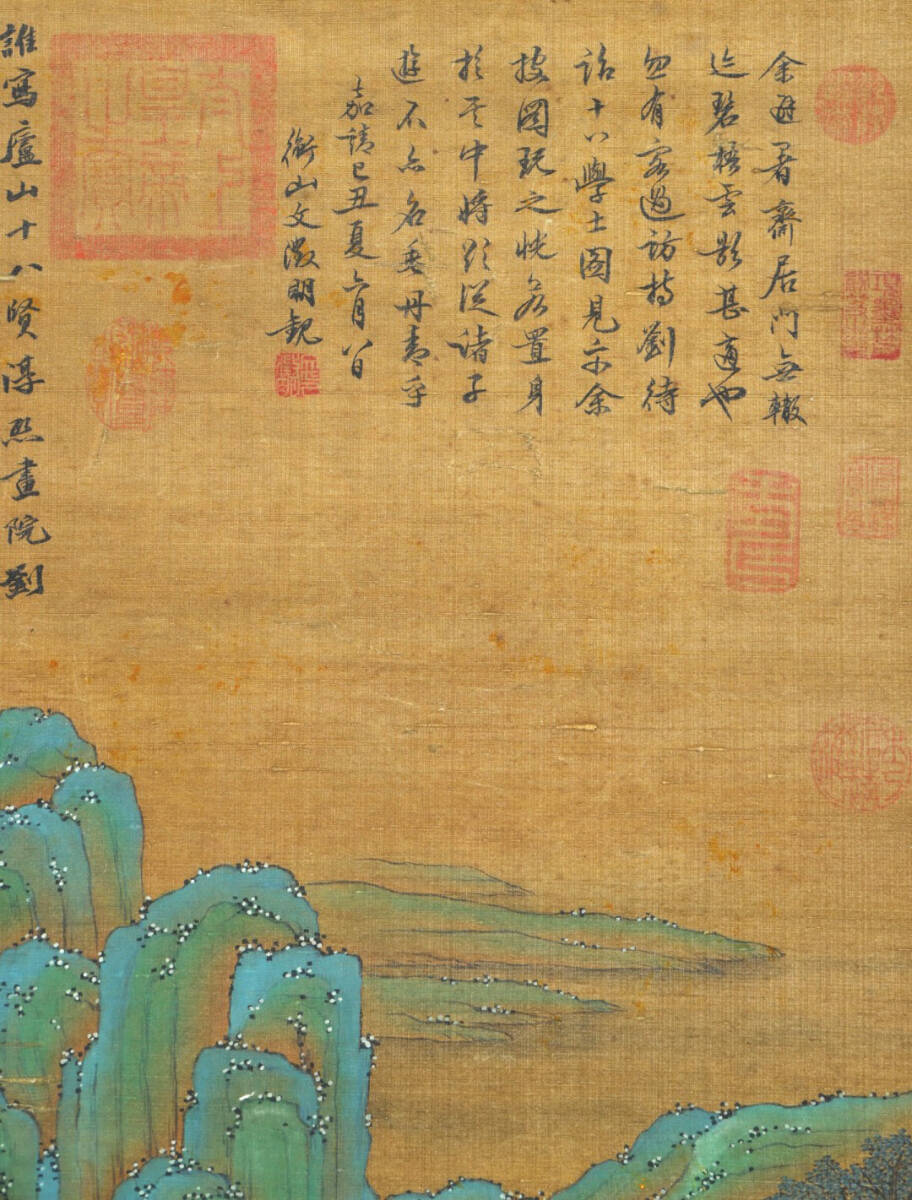 余避暑齋居門無轍
迹碧梧雲影甚適也
忽有客過訪持劉待
詔十八學士圖見示余
按圖玩之恍若置身
於其中將欲從諸子
遊不亦名垂丹青乎
嘉靖己丑夏六月八日
衡山文徵明觀
誰寫廬山十八賢淳熙畫院劉